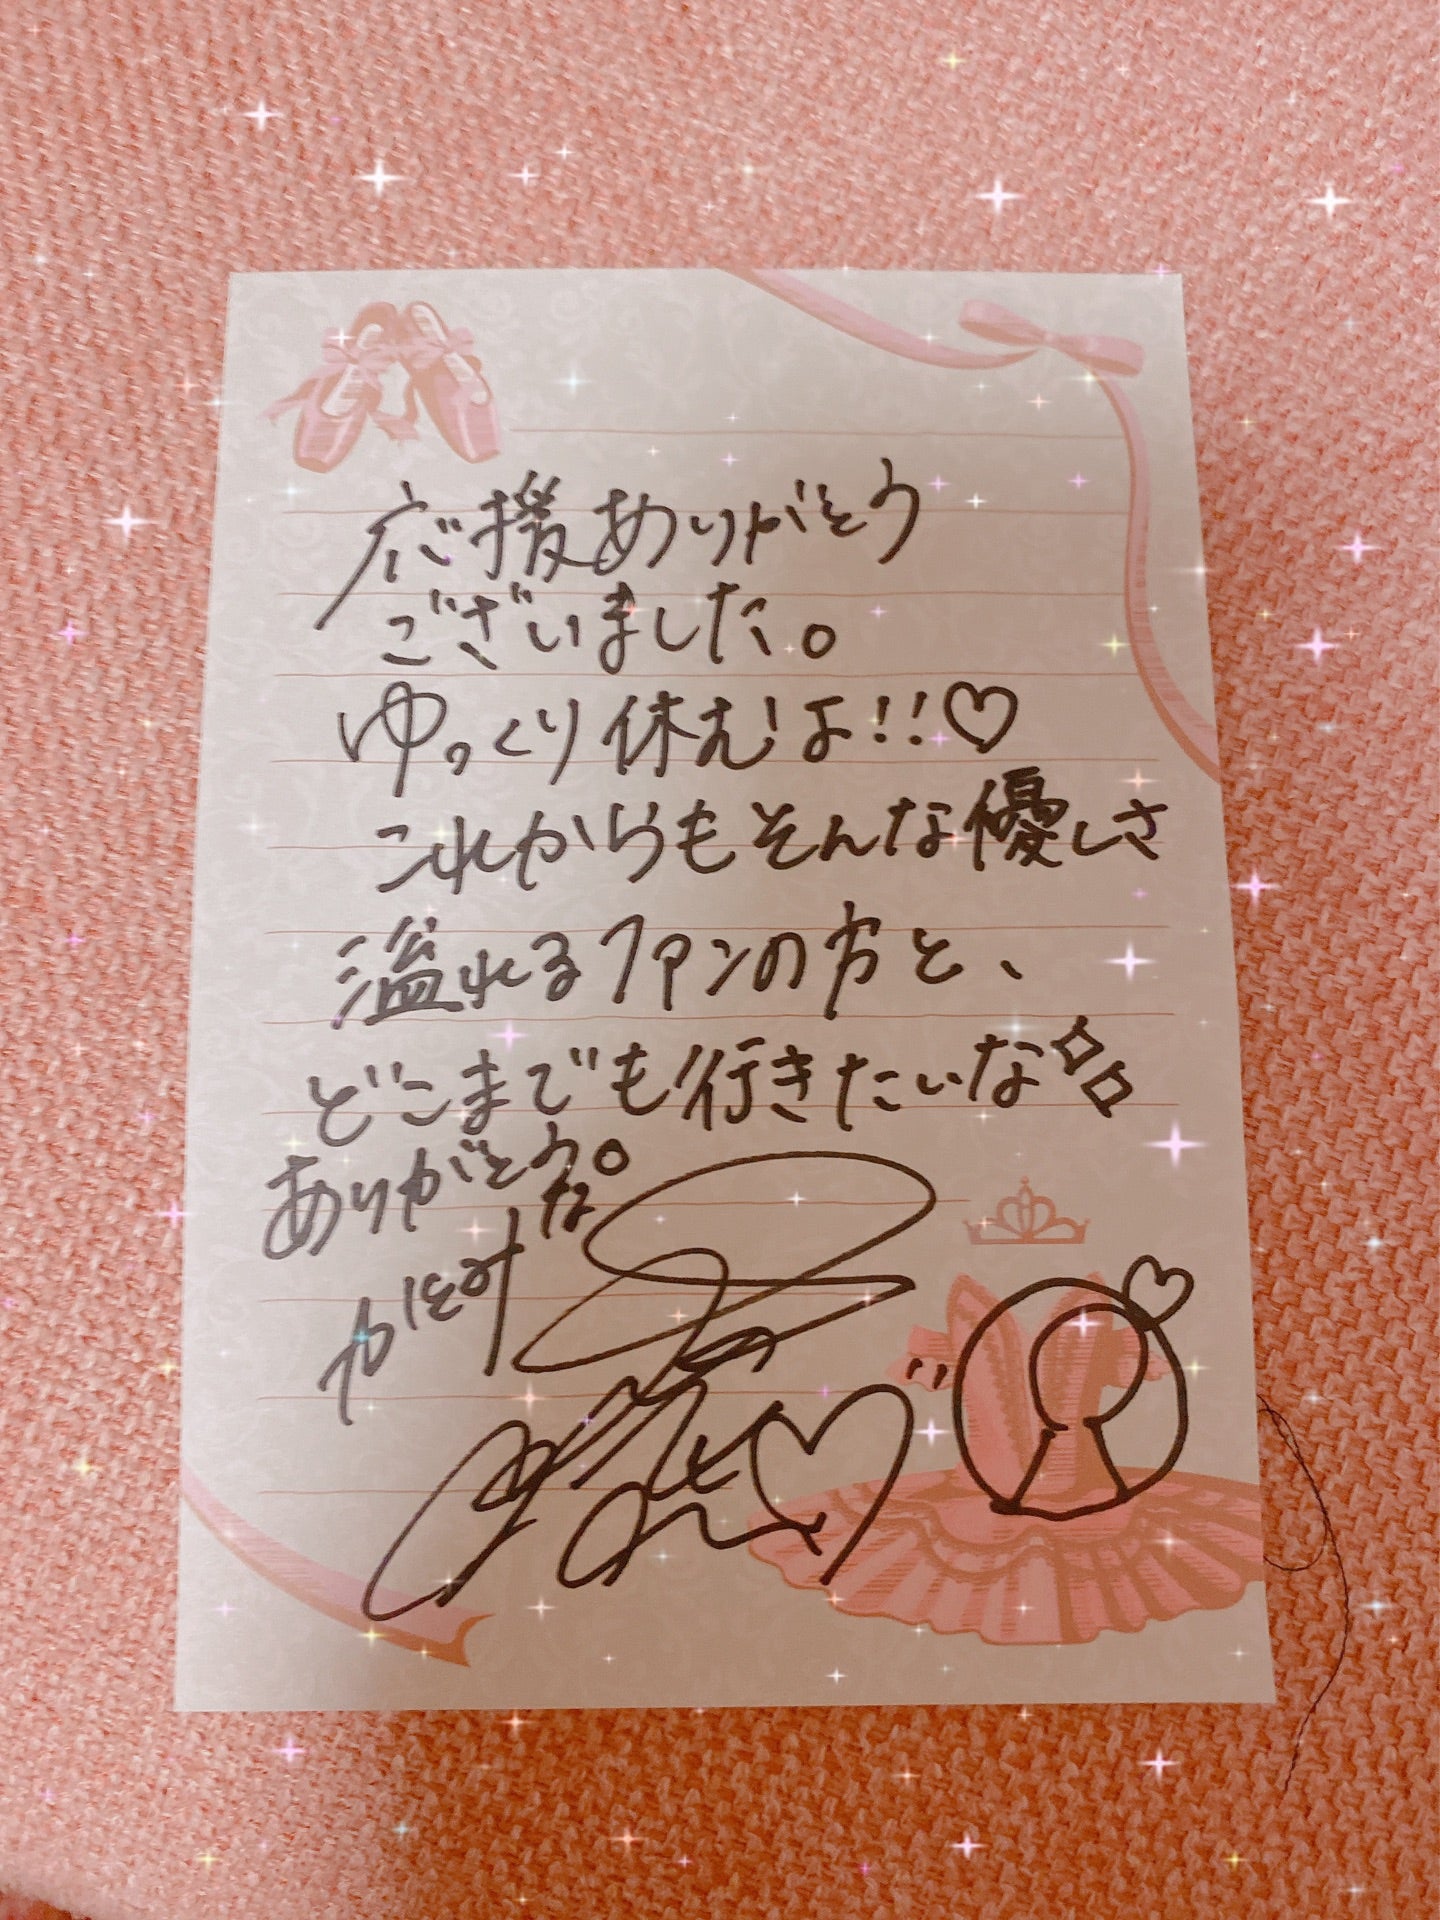 応援ありがとう
ございました。
ゆっくり休むよ!!♡
これからもそんな優しさ
溢れるファンの方と、
どこまでも行きたいな
ありがとう。